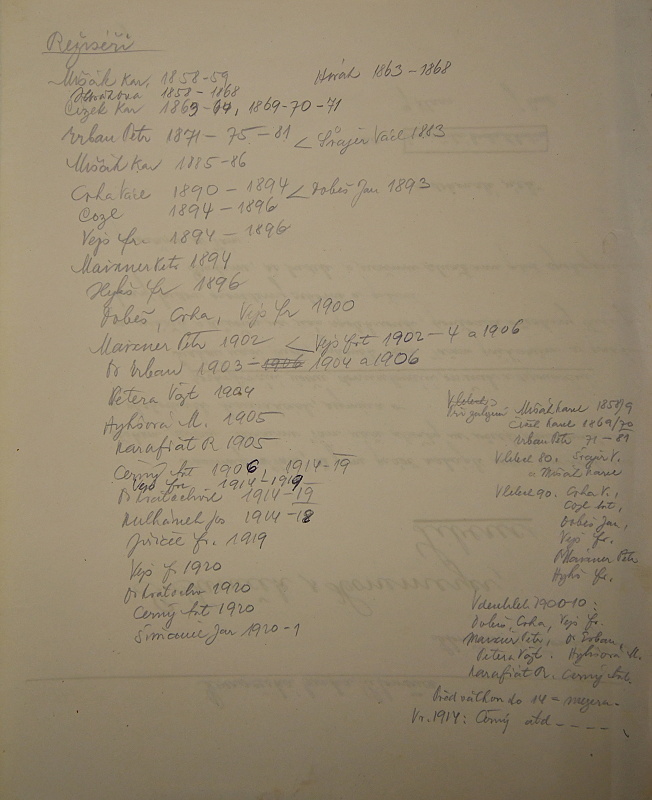 Režiséři
Mišák Kar. 1858-59 Horák 1863-1868
1858-1868
Čížek Kar 1869-64, 1869-70-71
Urban Petr 1871-75-81 < Šrajer Václ 1883
Mišák Kar 1885-86
Crha Václ 1890-1894 < Dobeš Jan 1893
Cozl 1894-1896
Vejs Fr. 1894-1896
Maixner Petr 1894
Hykš Fr 1896
Dobeš, Crha, Vejs Fr 1900
Maixner Petr 1902 < Vejs Frt 1902-4 a 1906
Dr Urban 1903-1906 1904 a 1906
Petera Vojt 1904
Hykšová M. 1905
Karafiát R 1905
Černý Ant 1906, 1914-19
Vejs Fr. 1914-1919
Dr Kratochvíl 1914-19
Kulhánek Jos 1914-18
Jiříček Fr. 1919
Vejs Fr 1920
Dr Kratochv 1920
Černý Ant 1920
Šimáně Jan 1920-1
Mišák Karel 1858/9
Čížek Karel 1869/70
Urban Petr 71-81
V letech 80. Šrajer V.
a Mišák Karel
V letech 90. Crha V.,
Cozl Ant.,
Dobeš Jan,
Vejs Fr.
Maixner Petr
Hykš Fr.
V desitilet 1900-10:
Dobeš, Crha, Vejs Fr.
Maixner Petr, Dr Urban,
Petera Vojt. Hykšová M.
Karafiát R. Černý Ant.
Před válkou do 14 = mezera.
V r. 1914: Černý atd - - - -